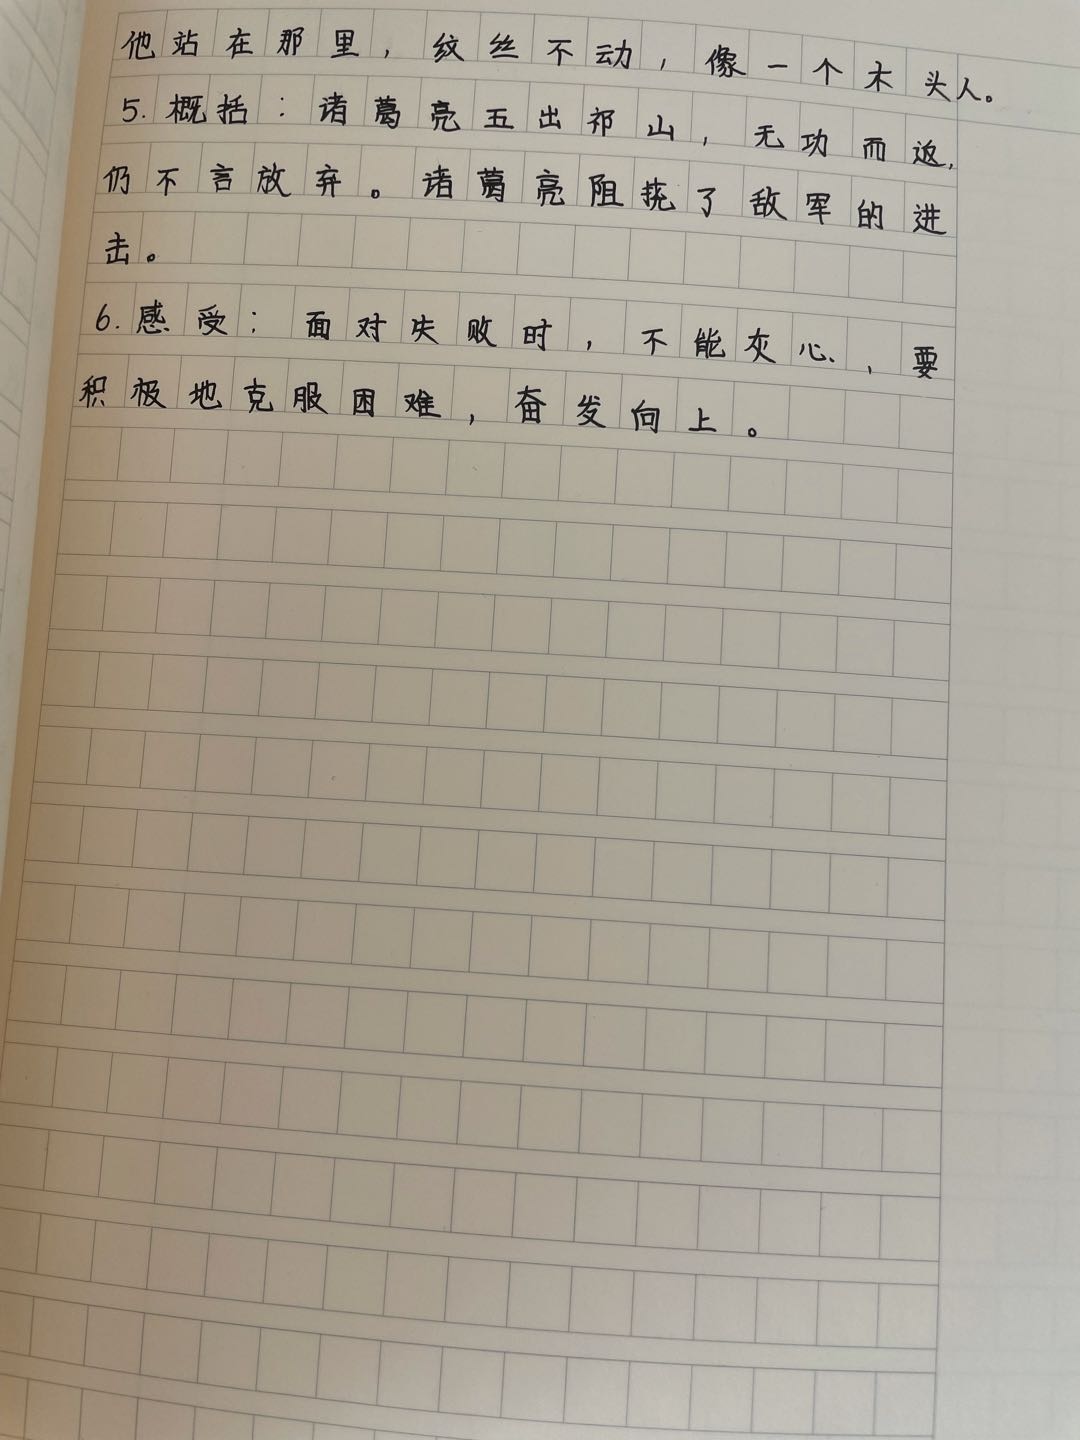 他站在那里，纹丝不动，像一个木头人。
5.概括：诸葛亮五出祁山，无功而返，
仍不言放弃。诸葛亮阻挠了敌军的进
击。
6.感受：面对失败时，不能灰心，要
积极地克服困难，奋发向上。